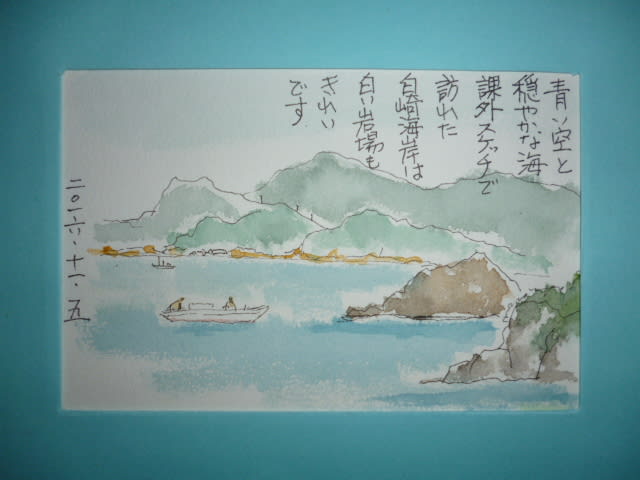 青い空と
穏やかな海
課外スケッチで
訪れた
白崎海岸は
白い岩場も
きれい
です
二〇一六・十一・五